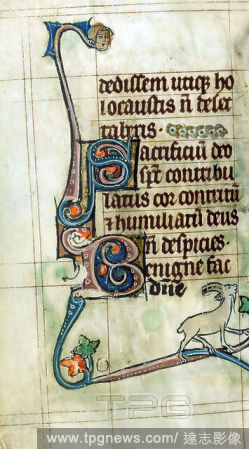 dedissem utiqȝ ho
locaustis ñ delec
taberis.
Sacrificiũ deo
sp̃c contribu
latus cor contritũ
⁊ humiliatũ deus
ñ despicies.
Benigne fac
dñe
TPG
www.tpgnews.com/ 達志影像